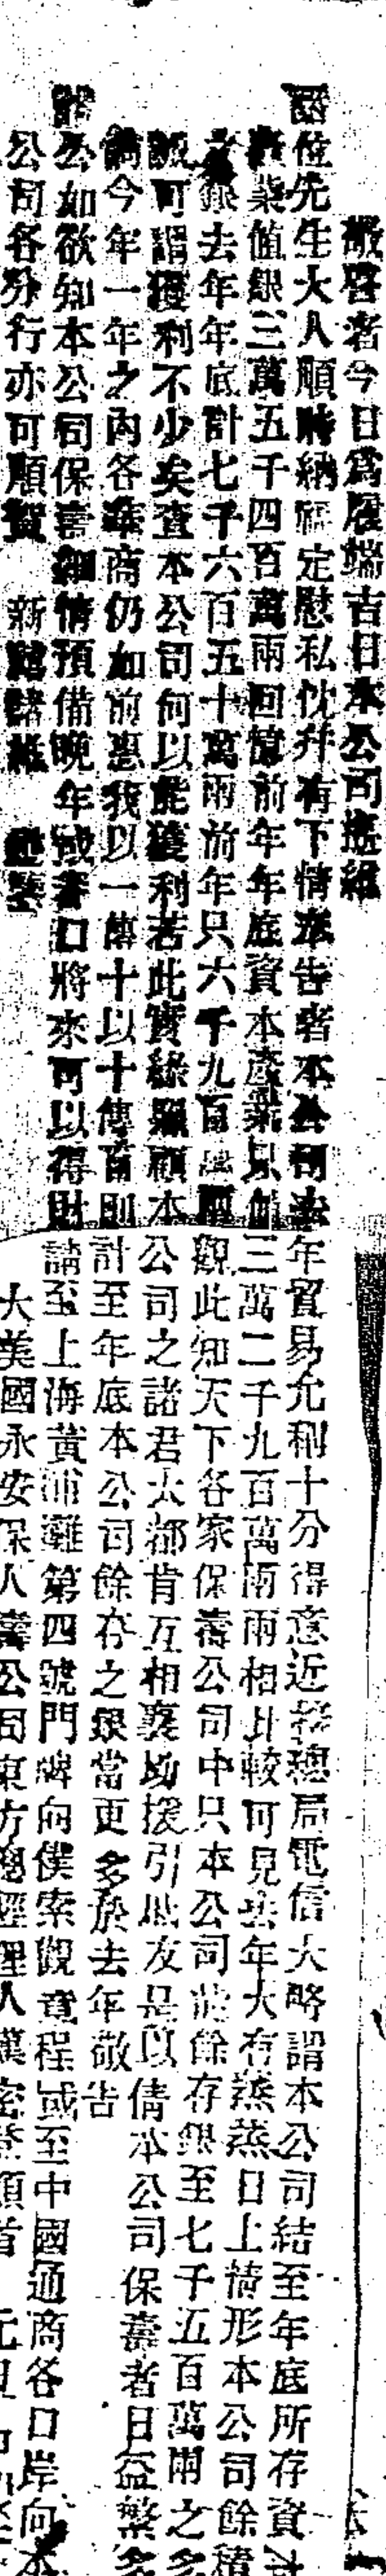 敬啓者今日爲履端吉日本公司恭維
諸位先生大人順時納福定慰私忱幷有下情奉告者本公司去年貿易允利十分得意近接總局電信大略謂本公司結至年底所存資本
產業值銀三萬五千四百萬兩回憶前年年底資本產業只值三萬二千九百萬兩兩相比較可見去年大有蒸蒸日上情形本公司餘積
之銀去年年底計七千六百五十萬兩前年只六千九百萬兩觀此知天下各家保壽公司中只本公司能餘存銀至七千五百萬兩之多
誠可謂獲利不少矣查本公司何以能獲利若此實緣照顧本公司之諸君大都肯互相襄助援引戚友是以倩本公司保壽者日益繁多
倘今年一年之內各華商仍如前惠我以一傳十以十傳百則計至年底本公司餘存之銀當更多於去年敬告
諸公如欲知本公司保壽細情預備晚年或妻口將來可以得財請至上海黃浦灘第四號門牌向僕索觀章程或至中國通商各口岸向本
公司各分行亦可順賀 新禧諸維 大美國永安保人壽公司東方總經理人 頓首